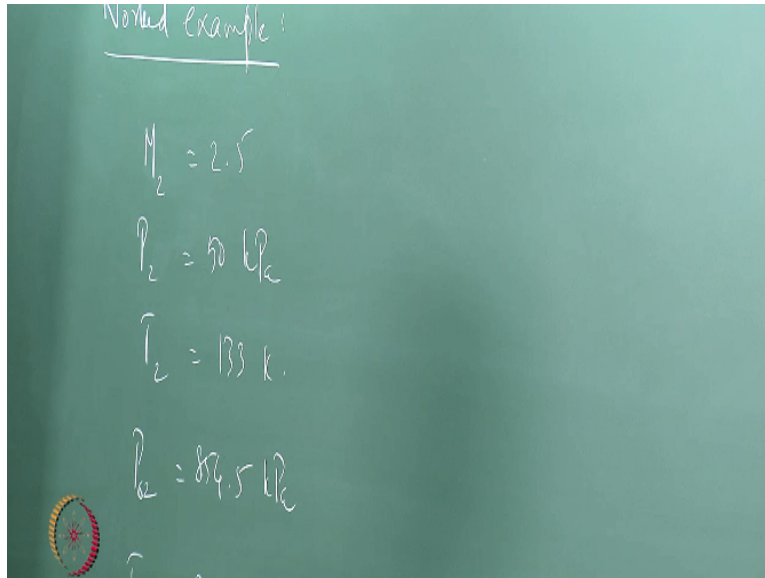 Worked example:
M₂ = 2.5
P₂ = 50 kPa
T₂ = 133 K.
P₀₂ = 854.5 kPa
T